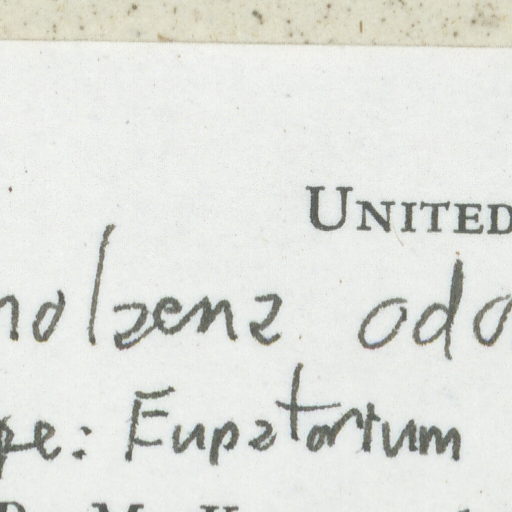 UNITED
nolaena odo
pe: Eupatorium